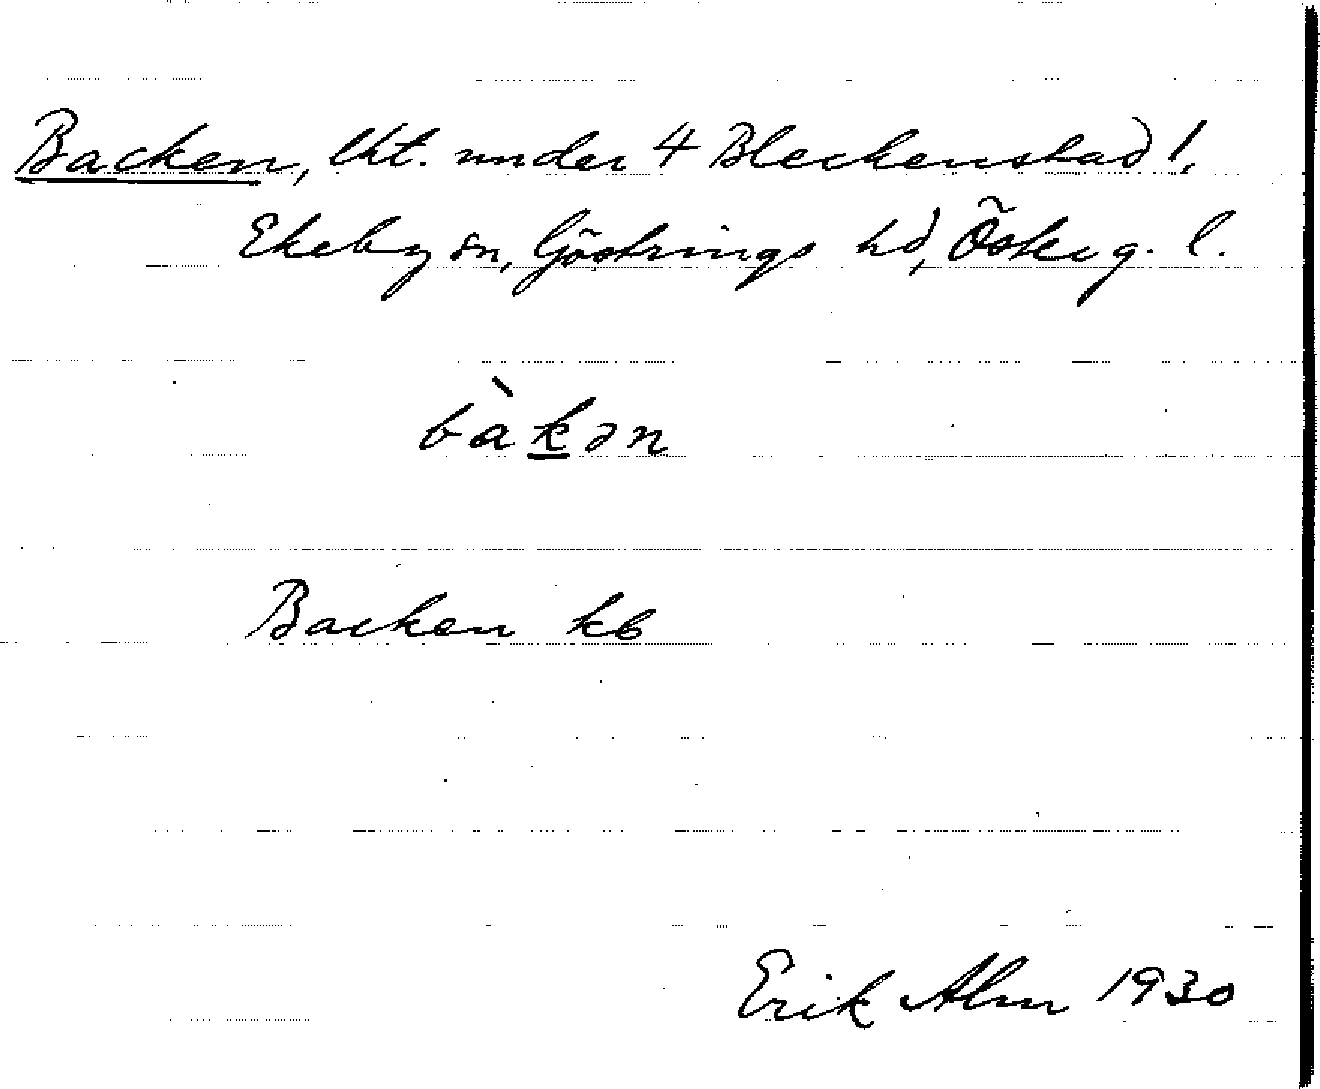 Backen, lht. under 4 Bleckenstad 1.
Ekeby sn, Göstrings hd, Österg. l.
bàkən
Backen kb
Erik Alm 1930